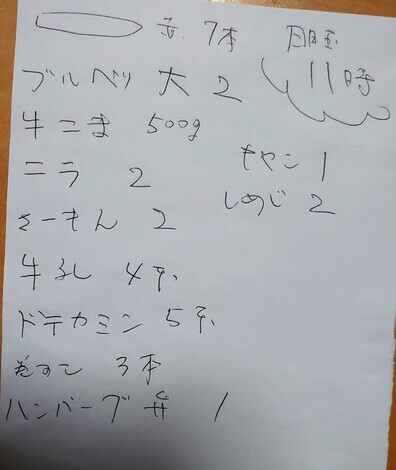 7本
11時
ブルベリ 大 2
牛こま 500g
ニラ 2
さーもん 2
牛乳 4
ドデカミン 5
巻すし 3本
ハンバーグ弁 1
1
しめじ 2